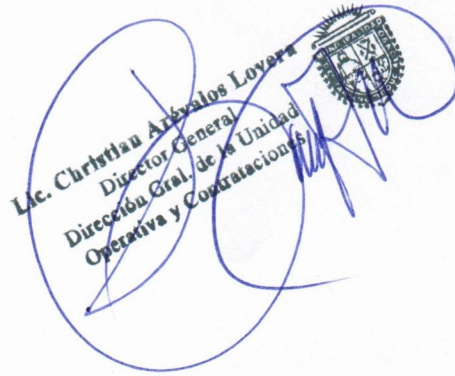 Lic. Christian Arévalos Lovera
Director General
Dirección Gral. de la Unidad
Operativa y Contrataciones